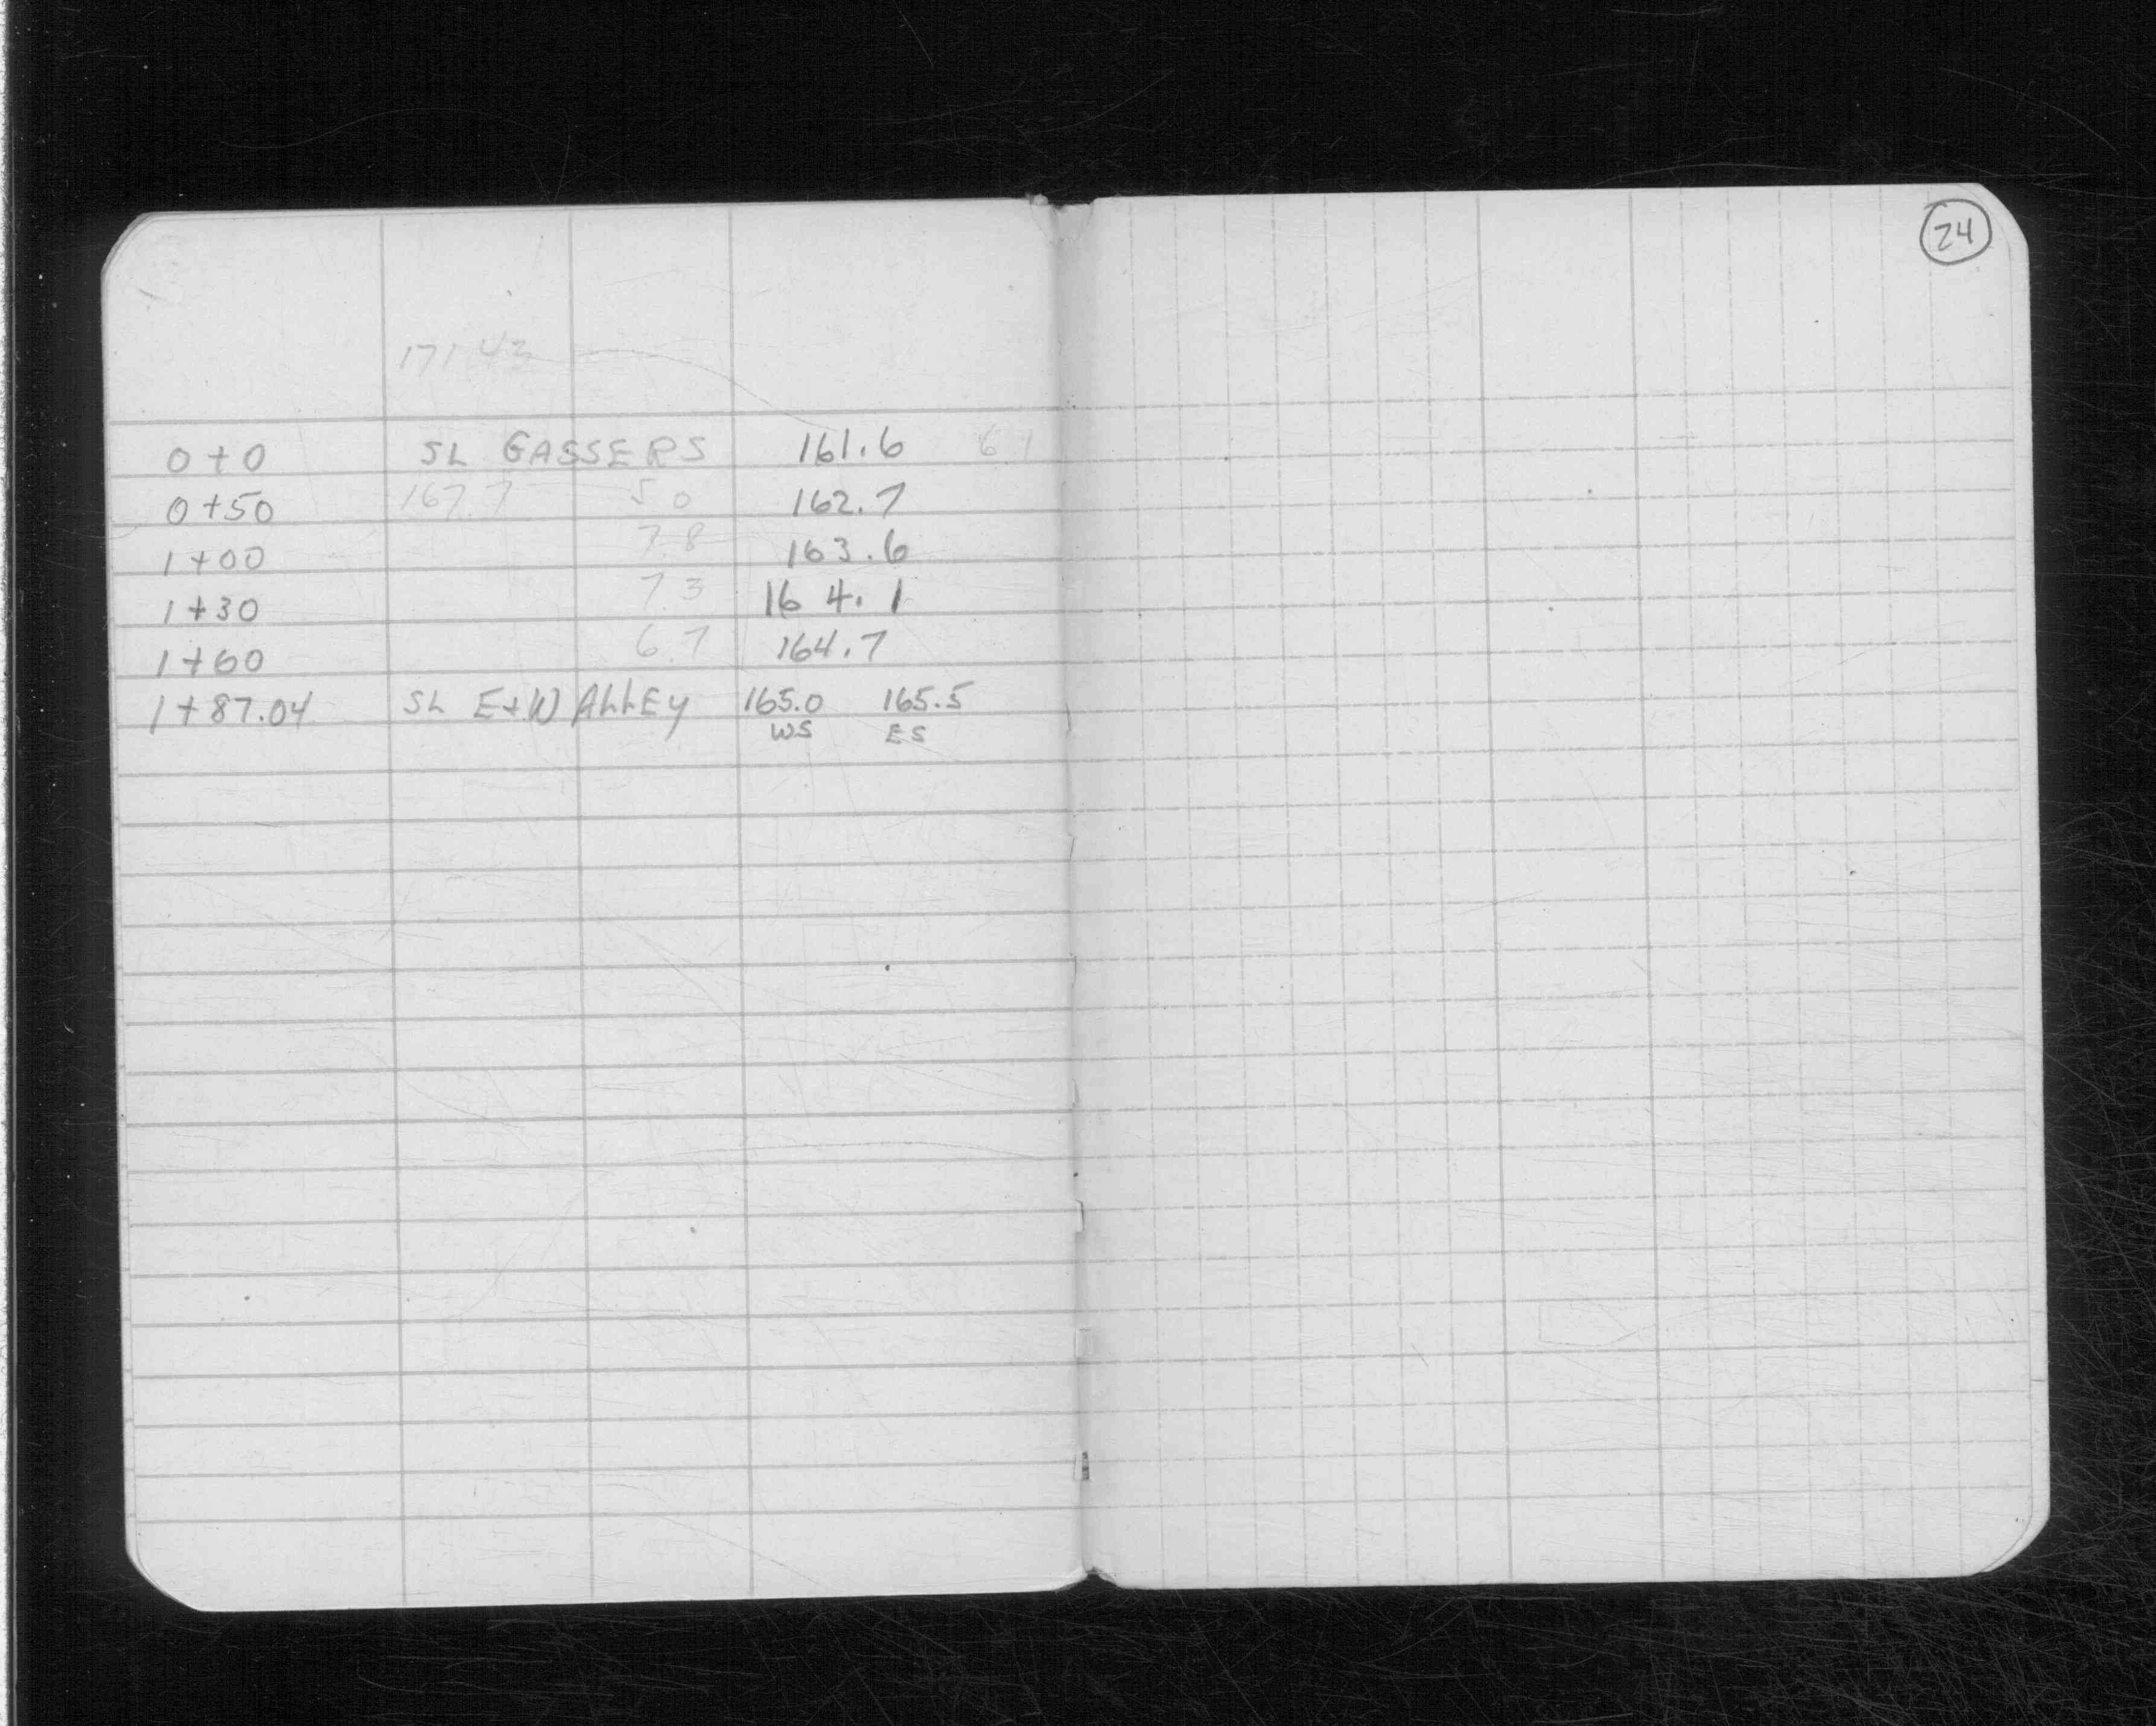 24
171.43
0+0 SL GASSERS 161.6 6.1
0+50 167.7 5.0 162.7
1+00 7.8 163.6
1+30 7.3 164.1
1+60 6.7 164.7
1+87.04 SL E+W ALLEY 165.0 165.5
WS ES